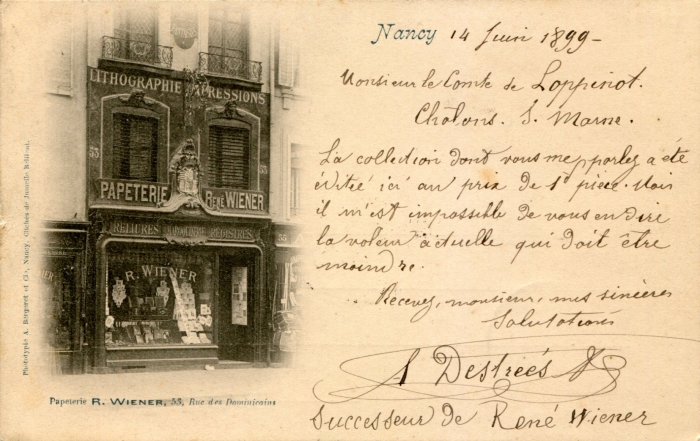 Nancy 14 Juin 1899-
Monsieur le Comte de Loppinot.
Châlons. S. Marne.
La collection dont vous me parlez a été
éditée ici au prix de 1f pièce. Mais
il m'est impossible de vous en dire
la valeur actuelle qui doit être
moindre.
Recevez, monsieur, mes sincères
Salutations
A Destreés
Successeur de René Wiener
LITHOGRAPHIE IMPRESSIONS
53
53
PAPETERIE RENÉ WIENER
RELIURES MAROQUINERIE REGISTRES
R. WIENER
Papeterie R. WIENER, 53, Rue des Dominicains
Phototypie A. Bergeret et Cie, Nancy. Clichés de Jameile